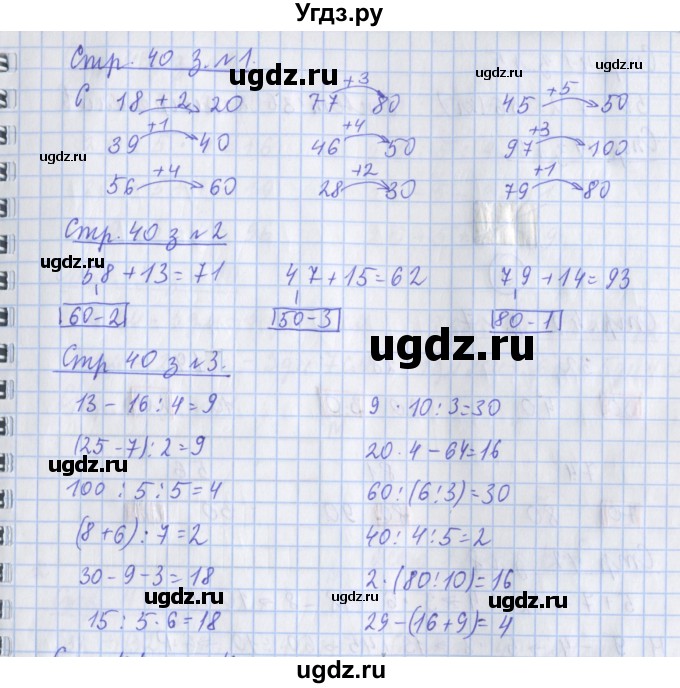 Угдз.ру
Стр. 40 з. №1.
ugdz.ru
С 18 +2 20 77 +3 80 45 +5 50
39 +1 40 46 +4 50 97 +3 100
ugdz.ru
56 +4 60 28 +2 30 79 +1 80
ugdz.ru ugdz.ru
Стр. 40 з №2
ugdz.ru
58 + 13 = 71 47 + 15 = 62 79 + 14 = 93
60 - 2 50 - 3 80 - 1
ugdz.ru ugdz.ru
Стр 40 з №3.
13 - 16 : 4 = 9 9 · 10 : 3 = 30
ugdz.ru
(25 - 7) : 2 = 9 20 · 4 - 64 = 16
ugdz.ru
100 : 5 : 5 = 4 60 : (6 : 3) = 30
ugdz.ru
(8 + 6) : 7 = 2 40 : 4 : 5 = 2
30 - 9 - 3 = 18 2 · (80 : 10) = 16
ugdz.ru ugdz.ru
15 : 5 · 6 = 18 29 - (16 + 9) = 4
ugdz.ru